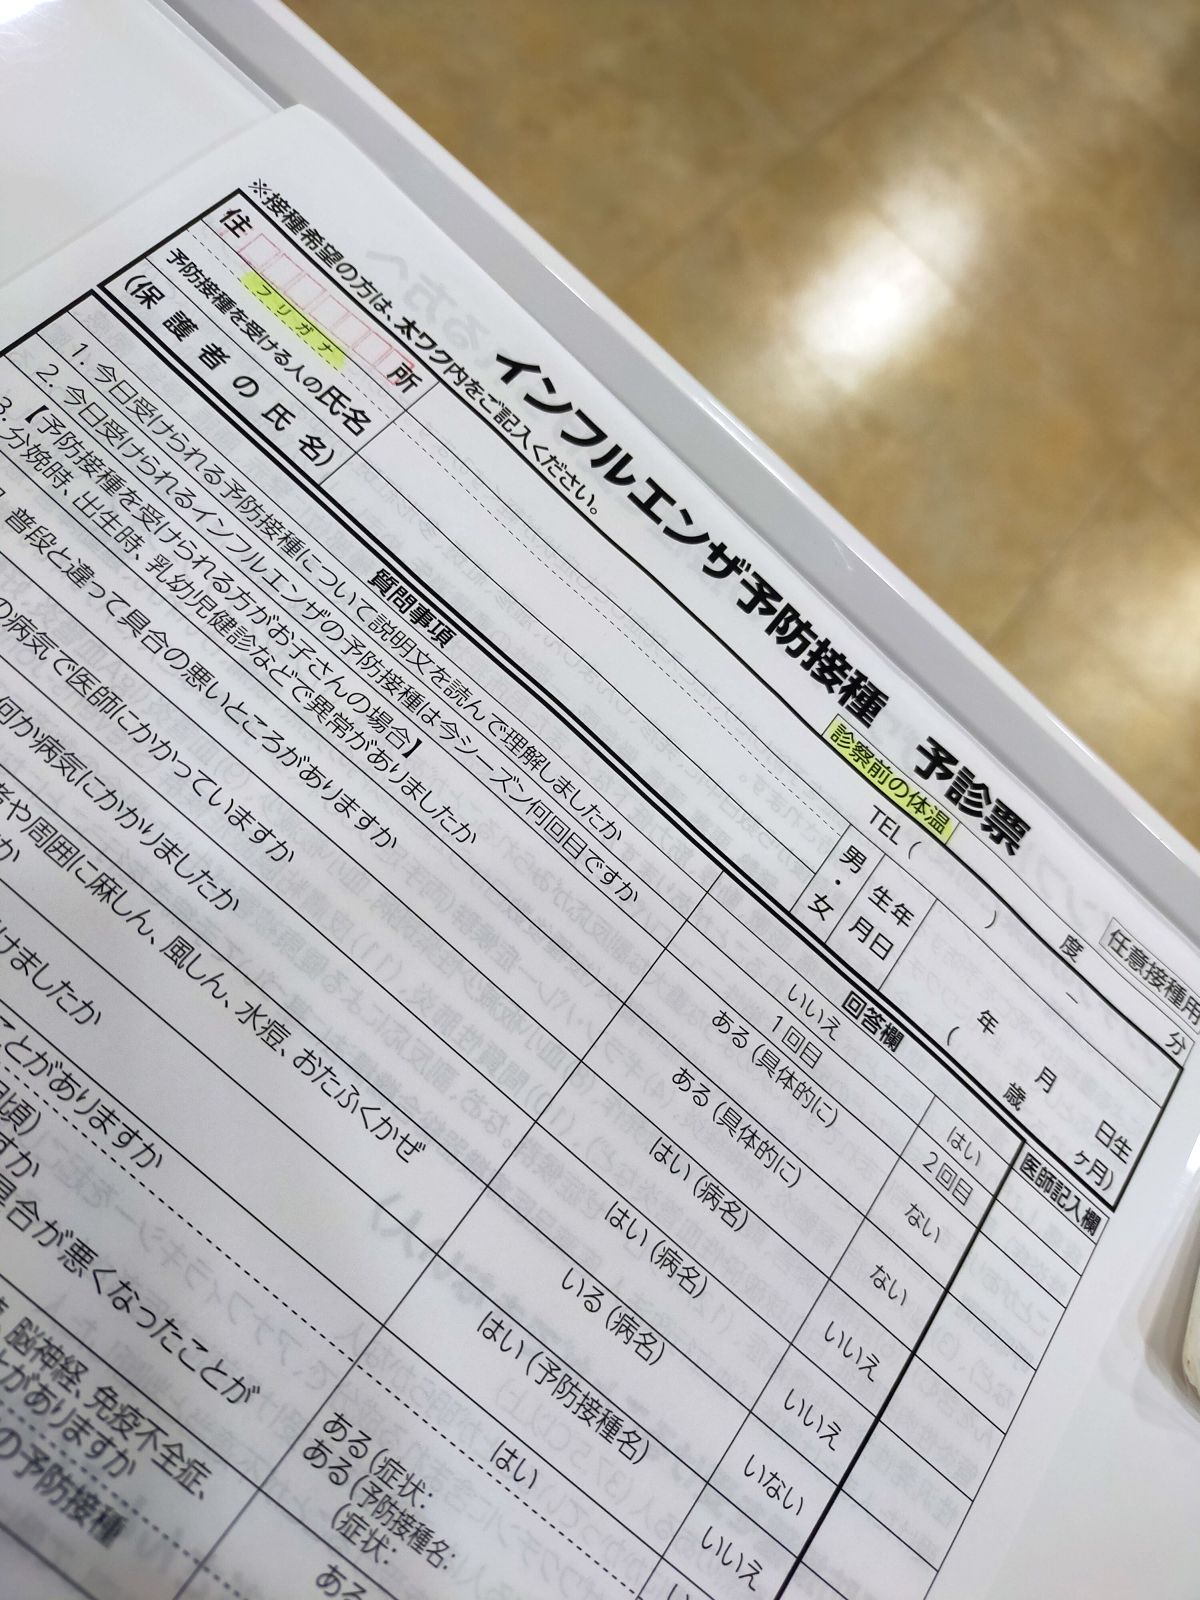 インフルエンザ予防接種 予診票
任意接種用
※接種希望の方は、太ワク内をご記入ください。
診察前の体温 度 分
住所
TEL ( ) －
フリガナ
予防接種を受ける人の氏名
男・女
生年月日
年 月 日生
( 歳 ヶ月)
(保護者の氏名)
質問事項 回答欄 医師記入欄
1. 今日受けられる予防接種について説明文を読んで理解しましたか いいえ はい
2. 今日受けられるインフルエンザの予防接種は今シーズン何回目ですか 1回目 2回目
3. 【予防接種を受けられる方がお子さんの場合】
分娩時、出生時、乳幼児健診などで異常がありましたか ある (具体的に) ない
普段と違って具合の悪いところがありますか ある (具体的に) ない
の病気で医師にかかっていますか はい (病名) いいえ
何か病気にかかりましたか はい (病名) いいえ
や周囲に麻しん、風しん、水痘、おたふくかぜ
か いる (病名) いない
けましたか はい (予防接種名) いいえ
ことがありますか はい
頃)
すか ある (症状:
具合が悪くなったことが ある (予防接種名:
(症状:
脳神経、免疫不全症、
とがありますか ある
の予防接種